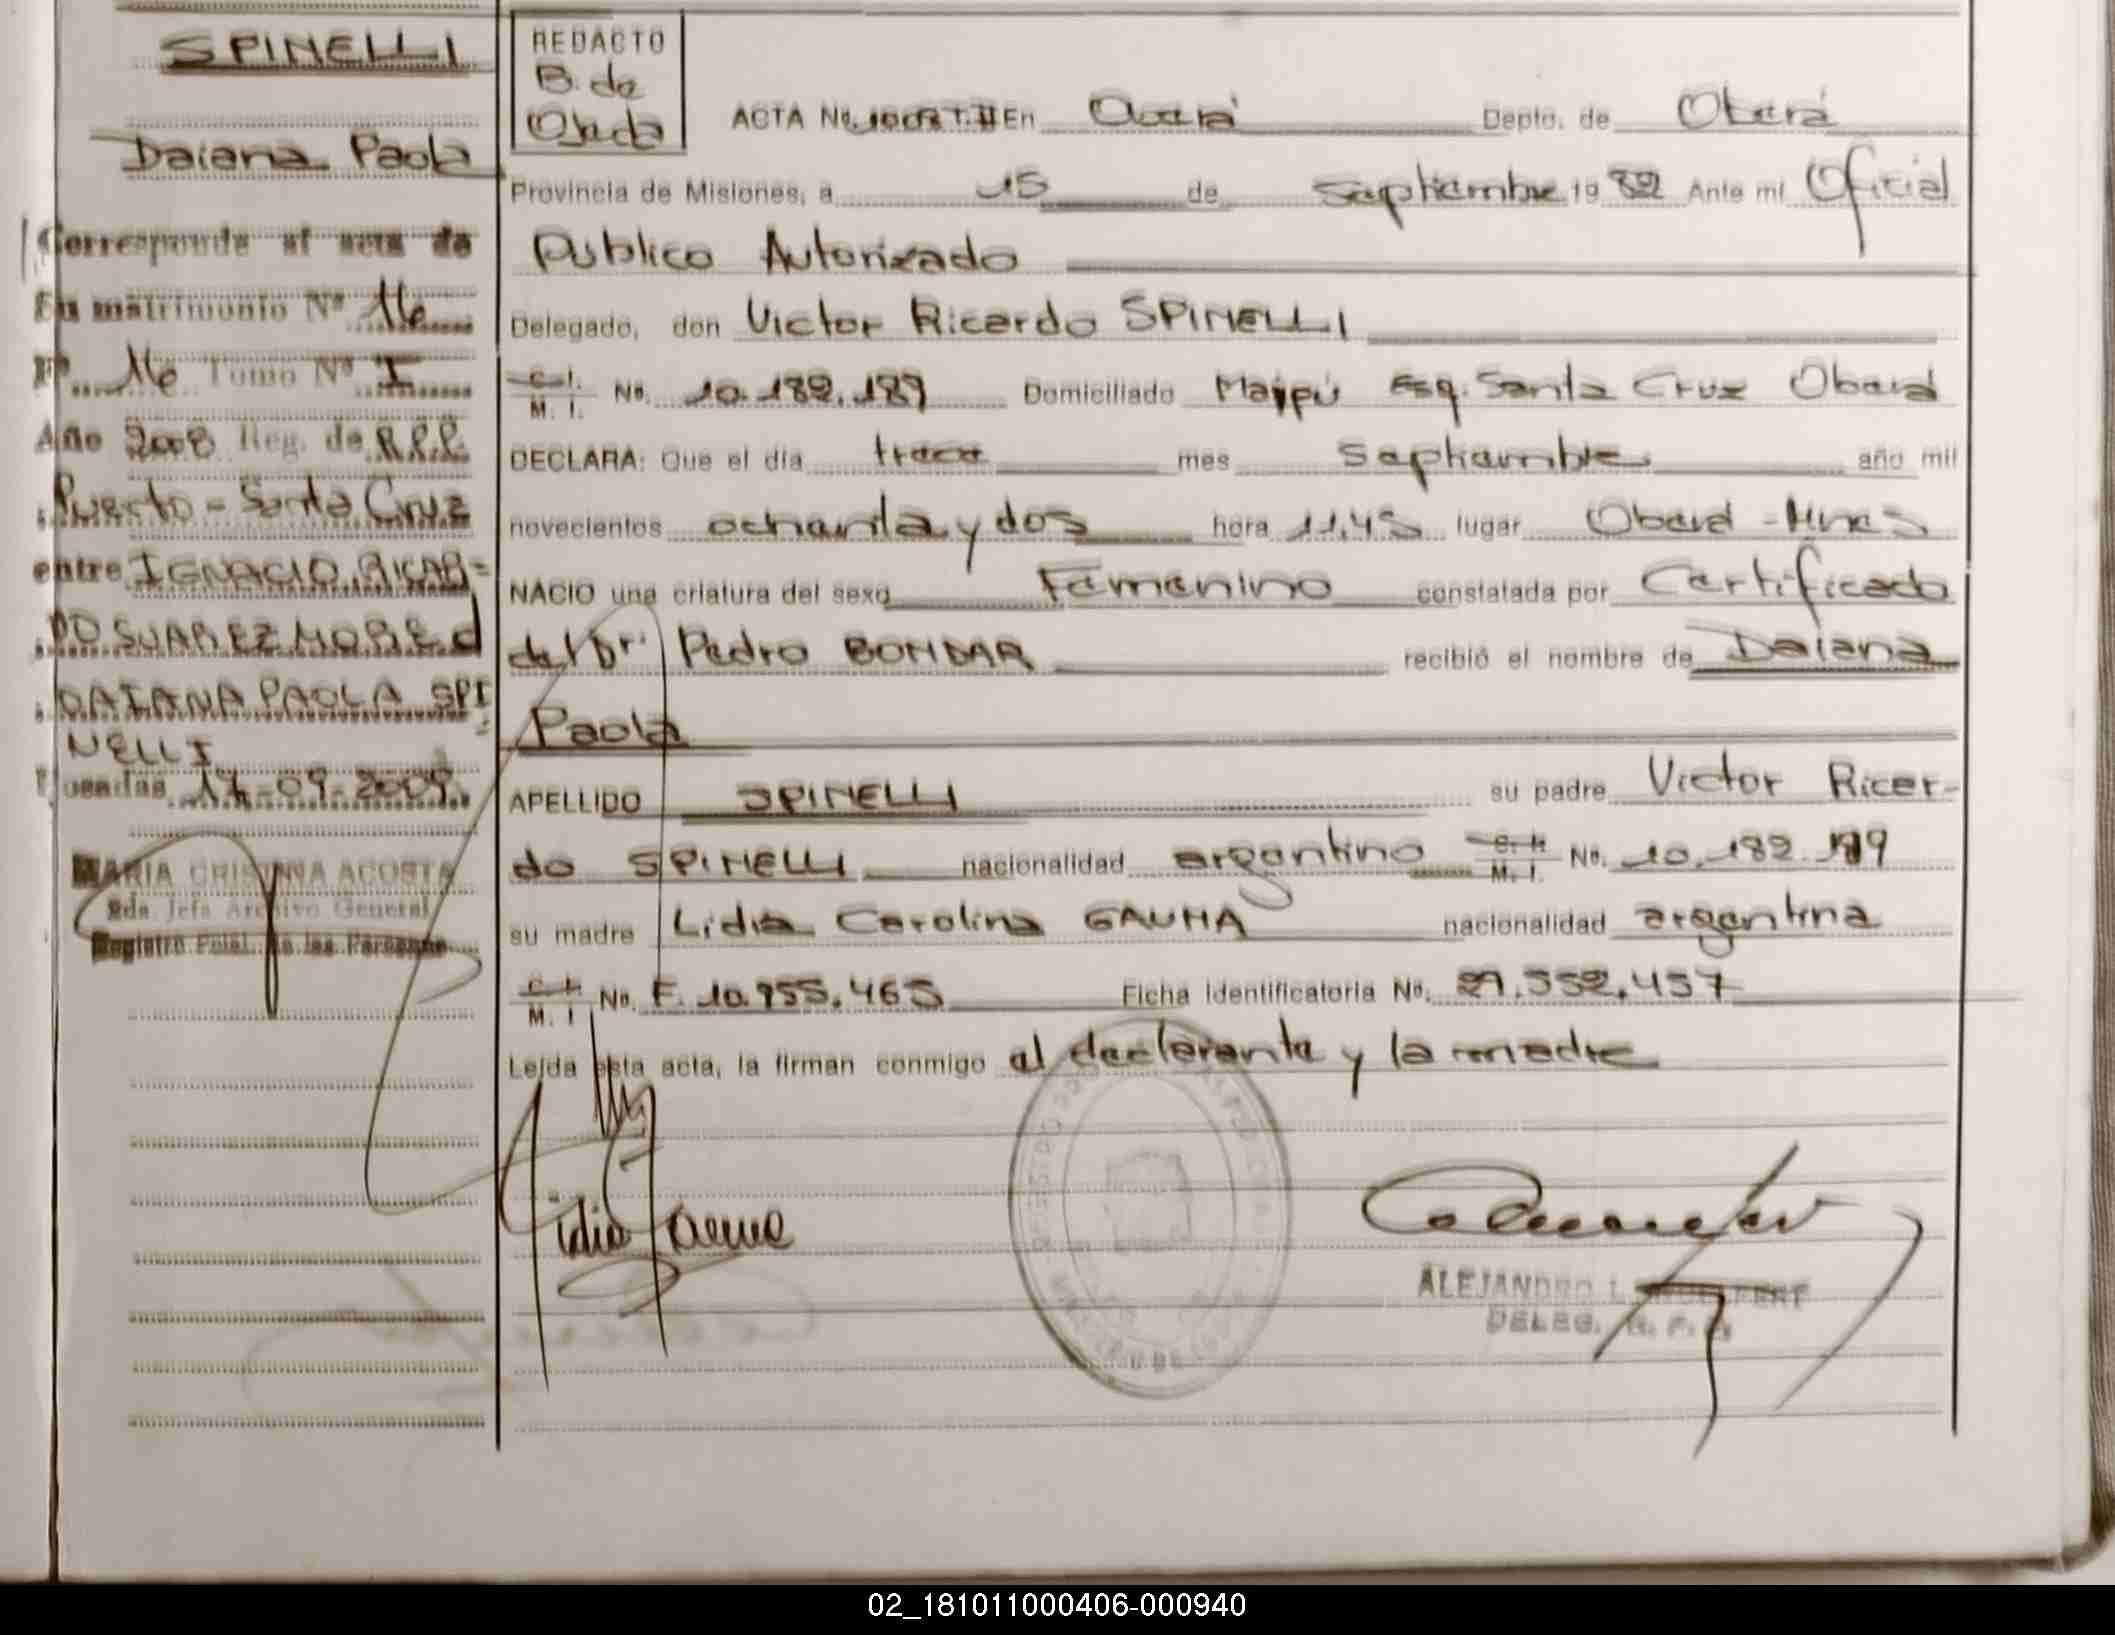 SPINELLI
Daiana Paola
Corresponde al acta de
En matrimonio Nº 116
Fº 116 Tomo Nº I
Año 2008 Reg. de R.P.P.
Puerto - Santa Cruz
entre IGNACIO RICAR=
DO SUAREZ MORE
DAIANA PAOLA SPI
NELLI
Posadas 17-09-2009.
MARIA CRISTINA ACOSTA
2da. Jefa Archivo General
Registro Pcial. de las Personas
REDACTO
B. de
Objeda
ACTA No. T. II En Oberá Depto. de Oberá
Provincia de Misiones, a 15 de Septiembre 19 82 Ante mi Oficial
Público Autorizado
Delegado, don Victor Ricardo SPINELLI
C. I. M. I. No. 10.182.189 Domiciliado Maipú Esq. Santa Cruz Oberá
DECLARA: Que el día trece mes Septiembre año mil
novecientos ochenta y dos hora 11,45 lugar Oberá - Mnes
NACIO una criatura del sexo Femenino constatada por Certificado
del Dr. Pedro BONDAR recibió el nombre de Daiana
Paola
APELLIDO SPINELLI su padre Victor Ricar-
do SPINELLI nacionalidad argentino C. I. M. I. No. 10.182.189
su madre Lidia Carolina GAUNA nacionalidad argentina
C. I. M. I No. F. 10.955.465 Ficha Identificatoria No. 29.552.457
Leída esta acta, la firman conmigo el declarante y la madre
Lidia Gauna
ALEJANDRO L.
DELEG. R. P. P.
02_181011000406-000940